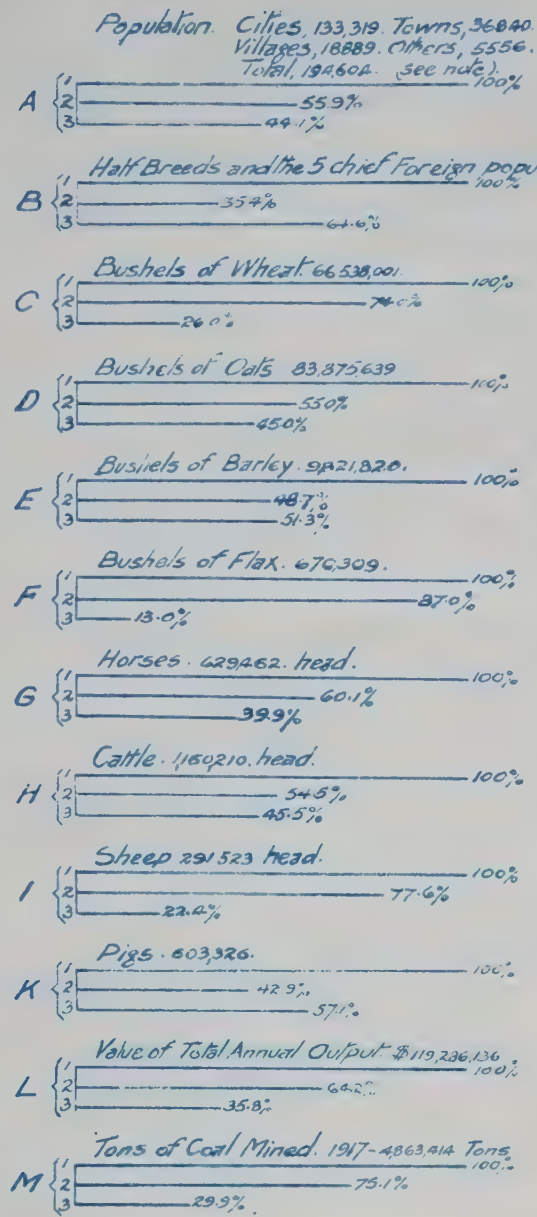 Population. Cities, 133,319. Towns, 36840.
Villages, 18889. Others, 5556.
Total, 194,604. (see note).
A { 1 100%
2 55.9%
3 44.1%
Half Breeds and the 5 chief Foreign popu
B { 1 100%
2 35.4%
3 64.6%
Bushels of Wheat. 66,538,001.
C { 1 100%
2 74.0%
3 26.0%
Bushels of Oats 83,875,639
D { 1 100%
2 55.0%
3 45.0%
Bushels of Barley. 9,821,826.
E { 1 100%
2 48.7%
3 51.3%
Bushels of Flax.
F { 1 100%
2 87.0%
3 13.0%
Horses. 629,462. head.
G { 1 100%
2 60.1%
3 39.9%
Cattle. 1,160,210. head.
H { 1 100%
2 54.5%
3 45.5%
Sheep 291,523 head.
I { 1 100%
2 77.6%
3 22.4%
Pigs. 603,326.
K { 1 100%
2 42.9%
3 57.1%
Value of Total Annual Output. $119,286,136
L { 1 100%
2 64.2%
3 35.8%
Tons of Coal Mined. 1917-4,863,414 Tons
M { 1 100%
2 75.1%
3 29.9%